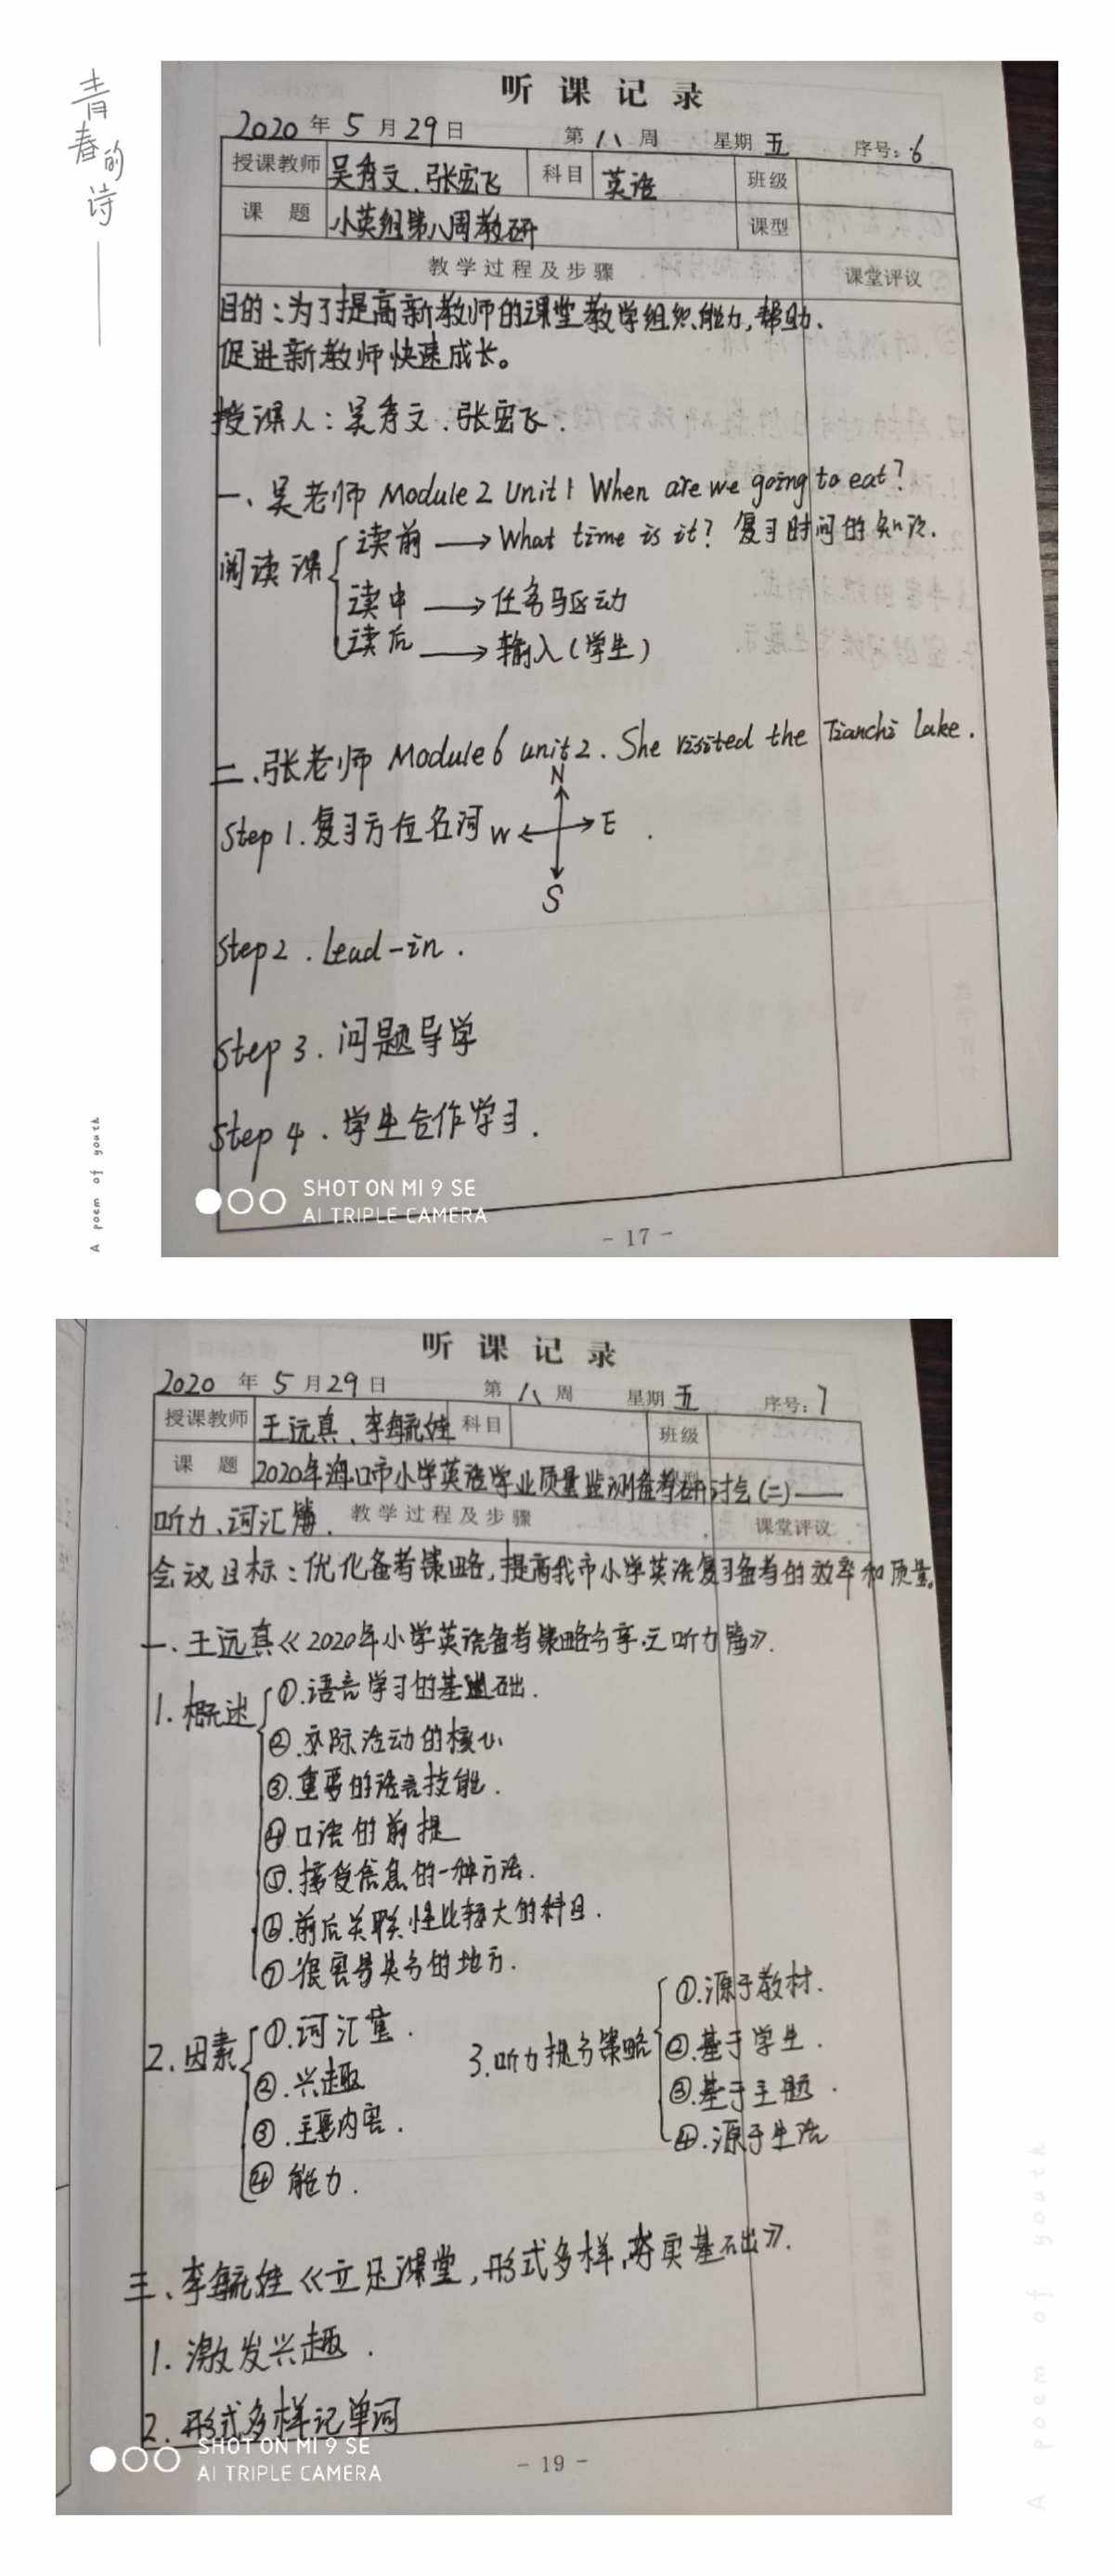 青春的诗
听课记录
2020年5月29日 第八周 星期五 序号:6
授课教师 吴秀文、张宏飞 科目 英语 班级
课题 小英组第八周教研 课型
教学过程及步骤 课堂评议
目的:为了提高新教师的课堂教学组织能力,帮助、
促进新教师快速成长。
授课人:吴秀文、张宏飞.
一、吴老师 Module 2 Unit 1 When are we going to eat?
阅读课 读前 → What time is it? 复习时间的知识.
读中 → 任务驱动
读后 → 输入(学生)
二、张老师 Module 6 unit 2. She visited the Tianchi Lake.
N
Step 1. 复习方位名词 W E .
S
Step 2. Lead-in.
Step 3. 问题导学
Step 4. 学生合作学习.
SHOT ON MI 9 SE
AI TRIPLE CAMERA
- 17 -
A poem of youth
听课记录
2020年5月29日 第八周 星期五 序号:7
授课教师 王远真、李毓娃 科目 班级
课题 2020年海口市小学英语学业质量监测备考研讨会(二)——
听力、词汇篇. 教学过程及步骤 课堂评议
会议目标:优化备考策略,提高我市小学英语复习备考的效率和质量。
一、王远真《2020年小学英语备考策略分享之听力篇》.
1. 概述 ①.语言学习的基础.
②.交际活动的核心
③.重要的语言技能.
④口语的前提
⑤.接受信息的一种方法.
⑥.前后关联性比较大的科目.
⑦很容易失分的地方.
2.因素 ①.词汇量.
②.兴趣
③.主要内容.
④ 能力.
3.听力提分策略 ①.源于教材.
②.基于学生.
③.基于主题.
④.源于生活
三、李毓娃《立足课堂,形式多样,夯实基础》.
1. 激发兴趣.
2. 形式多样记单词
SHOT ON MI 9 SE
AI TRIPLE CAMERA
- 19 -
A poem of youth